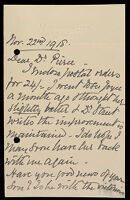 Nov. 22nd 1918.
Dear Dr Pierce -
I enclose postal orders
for 24/- I went over Joyce
a month ago & thought her
slightly better & Dr Stuart
writes the improvement is
maintained. I do hope I
may soon have her back
with me again.
Have you good news of your
son? Is he with the